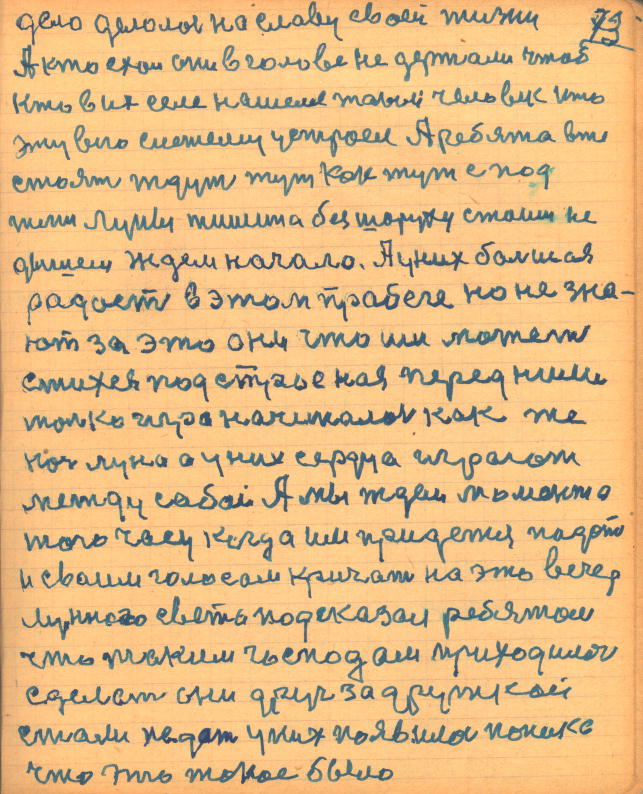 дело делолос на славу своей жизни 73
А кто ехои они в голове не держали чтоб
кто в их селе нашелся такой человек что
эту выю систему устроел А ребята вте
стоят ждут тут как тут с под
тени луны тишита без шоруху стоит не
дышем ждем начало. А у них большая
радост в этом прабеге но не зна-
ют за это они что им можеть
стихея подстрое ная перед ними
только игра начиналос как же
ноч луна а у них сердца играют
между сабой А мы ждем моманта
того часу когда им придетця падат
и сваим голосам кричат на это вечер
лунного света подсказал ребятам
что таким господам приходилос
сделат они друг за дружкой
стали падат у них появилас паника
что это такое было